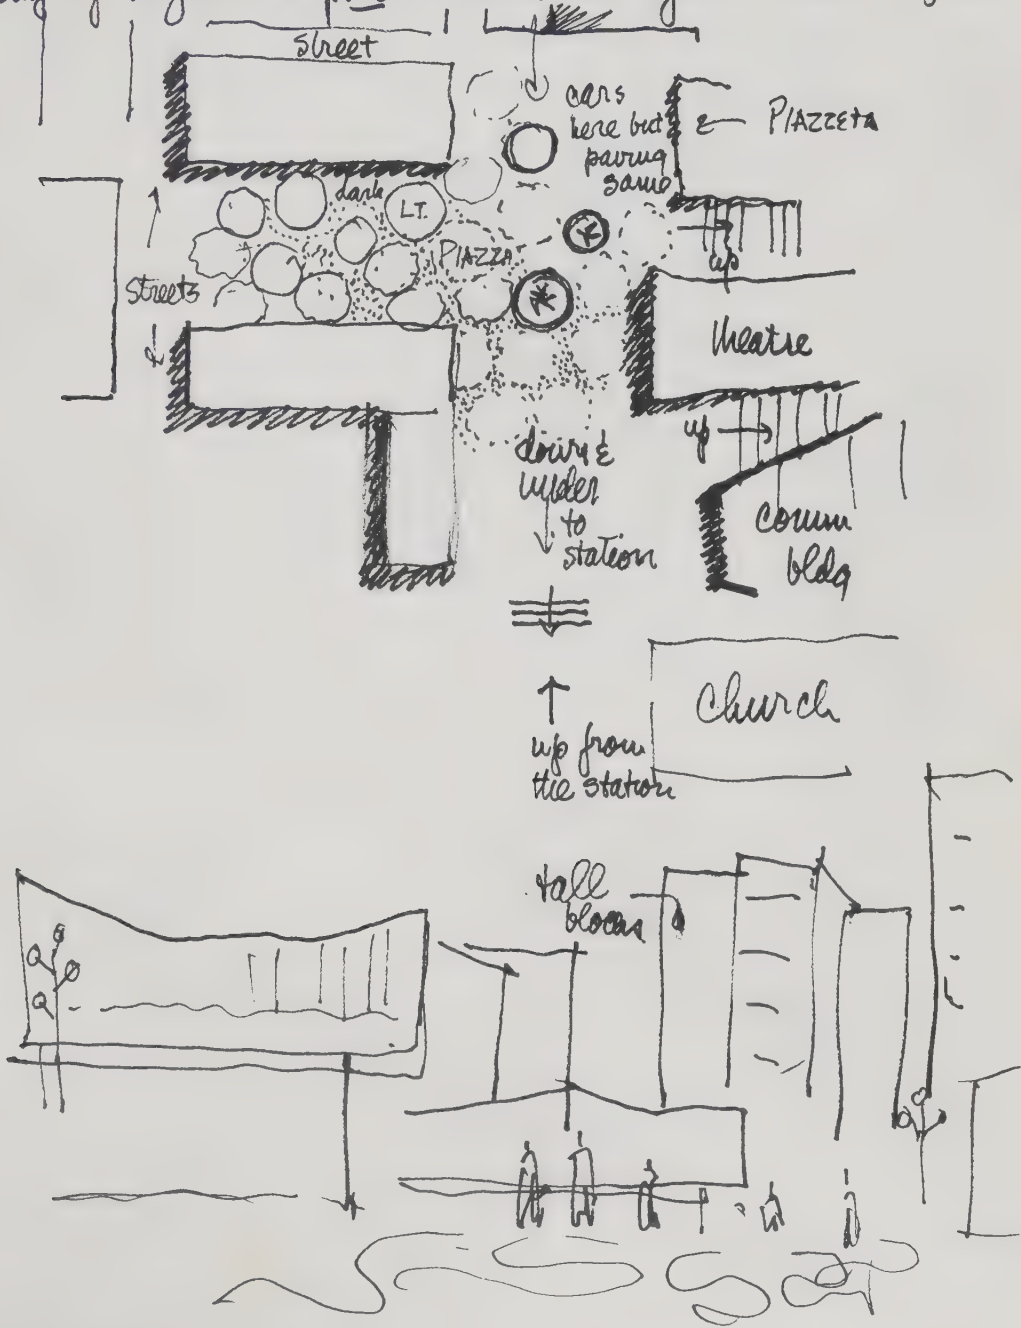 Street
cars
here but
paving
same
PIAZZETA
dark
LT.
PIAZZA
up
Streets
theatre
up
down &
under
to
station
comm
bldg
Church
up from
the station
tall
blocks